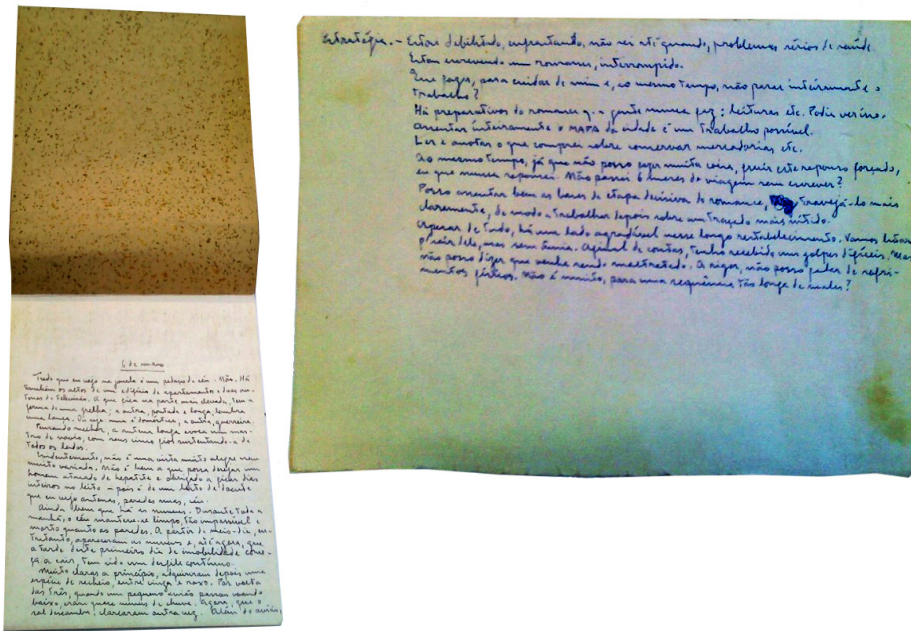 6 de março
Tudo que eu vejo na janela é um pedaço de céu. Não. Há
também os altos de um edifício de apartamentos e duas an-
tenas de televisão. A que fica na parte mais elevada, tem a
forma de uma grelha; a outra, pontuda e longa, lembra
uma lança. Ou seja: uma é doméstica, a outra, guerreira.
Pensando melhor, a antena longa evoca um mas-
tro de navio, com seus cinco fios sustentando-a de
todos os lados.
Evidentemente, não é uma vista muito alegre nem
muito variada. Não é bem a que possa desejar um
homem atacado de hepatite e obrigado a ficar dias
inteiros no leito — pois é de um leito de doente
que eu vejo antenas, paredes nuas, céu.
Ainda bem que há as nuvens. Durante toda a
manhã, o céu manteve-se limpo, tão impassível e
morto quanto as paredes. A partir do meio-dia, en-
tretanto, apareceram as nuvens e, até agora, que
a tarde deste primeiro dia de imobilidade come-
ça a cair, tem sido um desfile contínuo.
Muito claras a princípio, adquiriram depois uma
espécie de recheio, entre cinza e roxo. Por volta
das três, quando um pequeno avião passou voando
baixo, eram quase nuvens de chuva. Agora, que o
sol descamba, clarearam outra vez. Além do avião,
Estratégia. — Estou debilitado, enfrentando, não sei até quando, problemas sérios de saúde.
Estou escrevendo um romance, interrompido.
Que fazer, para cuidar de mim e, ao mesmo tempo, não parar inteiramente o
trabalho?
Há preparativos do romance q. a gente nunca fez: leituras etc. Podia ver isso.
Assentar inteiramente o MAPA da cidade é um trabalho possível.
Ler e anotar o que comprei sobre conservar mercadorias etc.
Ao mesmo tempo, já que não posso fazer muita coisa, fruir este repouso forçado,
eu que nunca repousei. Não passei 6 meses de viagem sem escrever?
Posso assentar bem as bases da etapa decisiva do romance, travejá-lo mais
claramente, de modo a trabalhar depois sobre um traçado mais nítido.
Apesar de tudo, há um lado agradável nesse longo restabelecimento. Vamos lutar
p/ sair dele, mas sem fúria. Afinal de contas, tenho recebido uns golpes difíceis. Mas
não posso dizer que venho sendo maltratado. A rigor, não posso falar de sofri-
mentos físicos. Não é muito, para uma sequência tão longa de males?